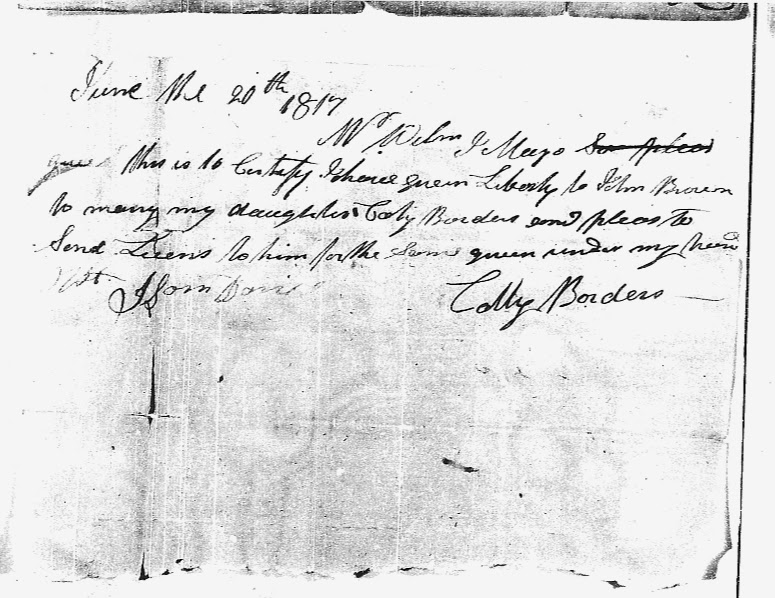 June the 20th 1817
Mr Wilm J Mayo So pleas
this is to Certify I have guein Liberty to John Brown
to marry my daughter Caty Borders and pleas to
Send Licens to him for the Same guein under my hand
Test Isom Davis Catty Borders